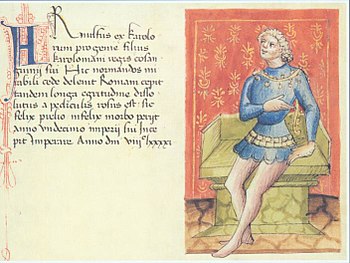 Arnulfus ex karolo
rum progenie filius
karolomāni regis cosan
guinii sui Hic normandos mi
rabili cede delevit Romam cepit
tandem longa egritudine disso
lutus a pediculis rosus est sic
felix prelio infelix morbo perijt
Anno undecimo imperij sui Ince
pit Imperare Anno dnī viijᶜ lxxxxi